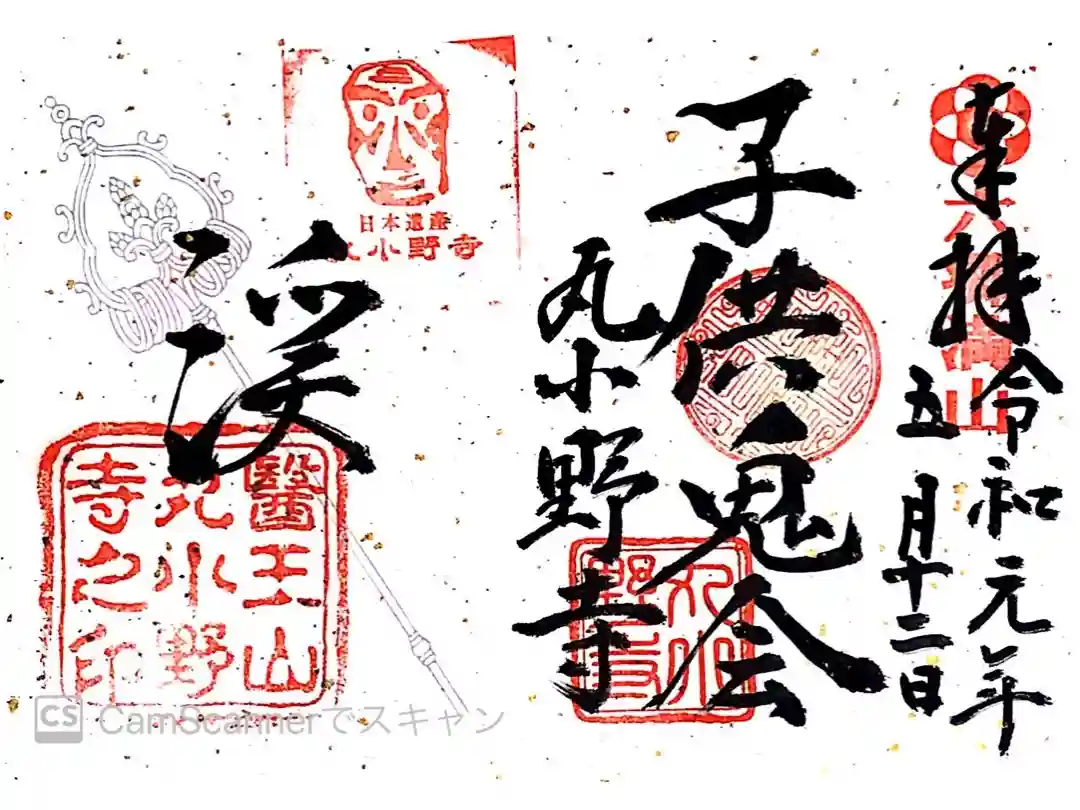 奉拝
令和元年
五月十二日
六郷満山
子供鬼会
丸小野寺
丸小野寺
渓
日本遺産
丸小野寺
醫王山
丸小野
寺之印
CS CamScannerでスキャン